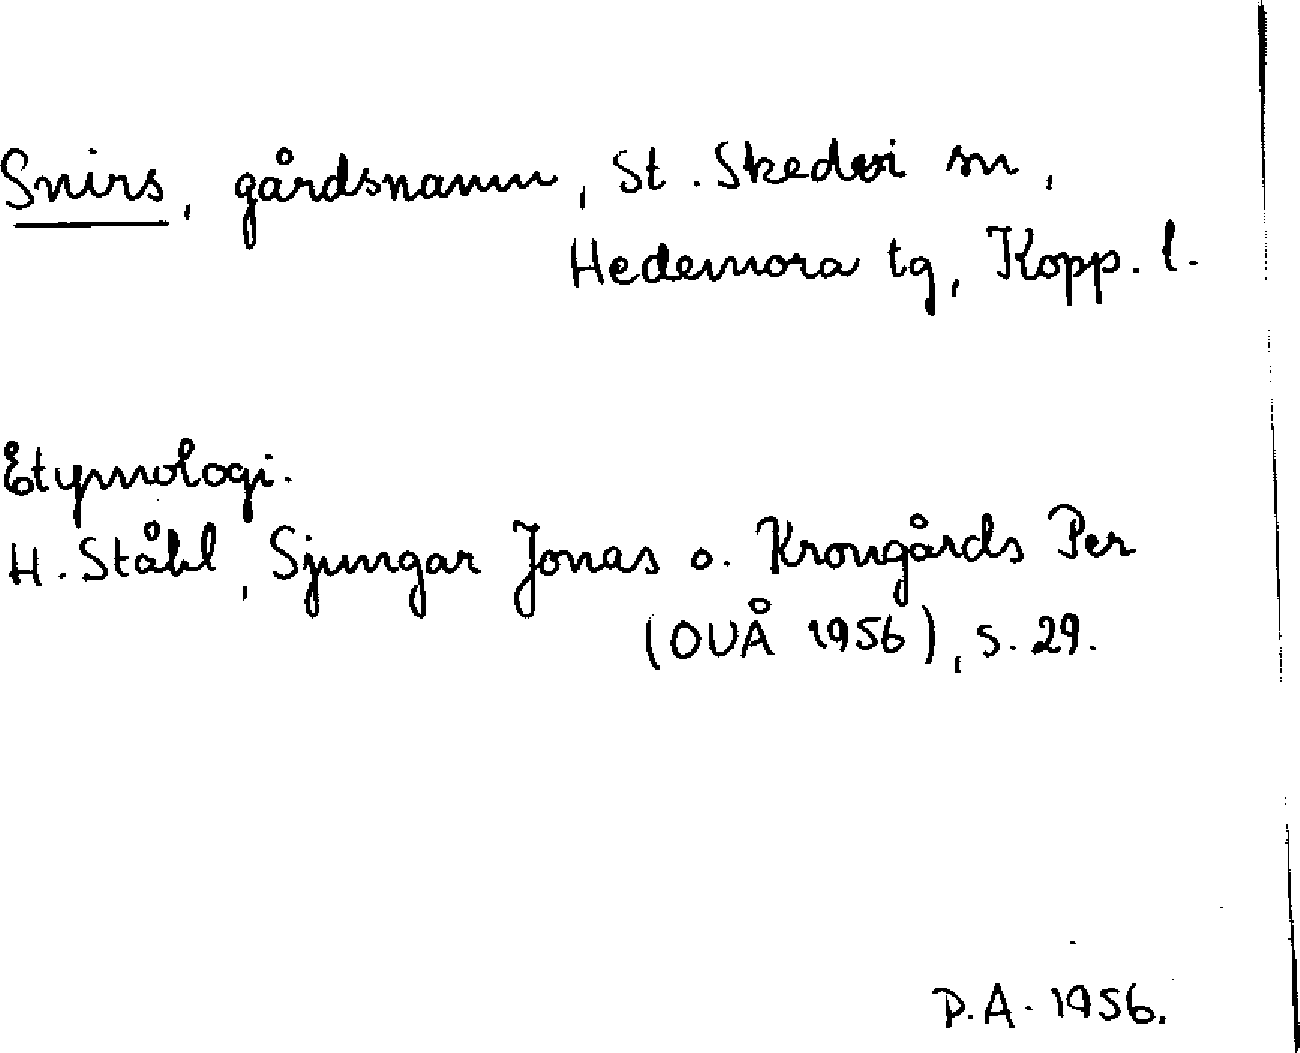 Snirs, gårdsnamn, St. Skedvi sn,
Hedemora tg, Kopp. l.
Etymologi.
H. Ståhl, Sjungar Jonas o. Krongårds Per
(OUÅ 1956), s. 29.
P.A. 1956.